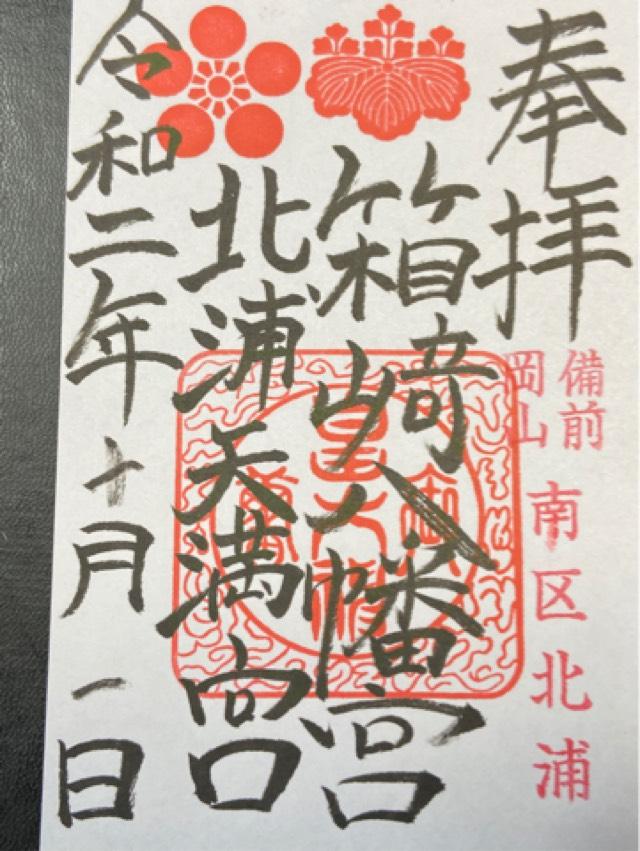 奉拝
備前
岡山
南区北浦
箱崎八幡宮
北浦天満宮
令和二年十月一日